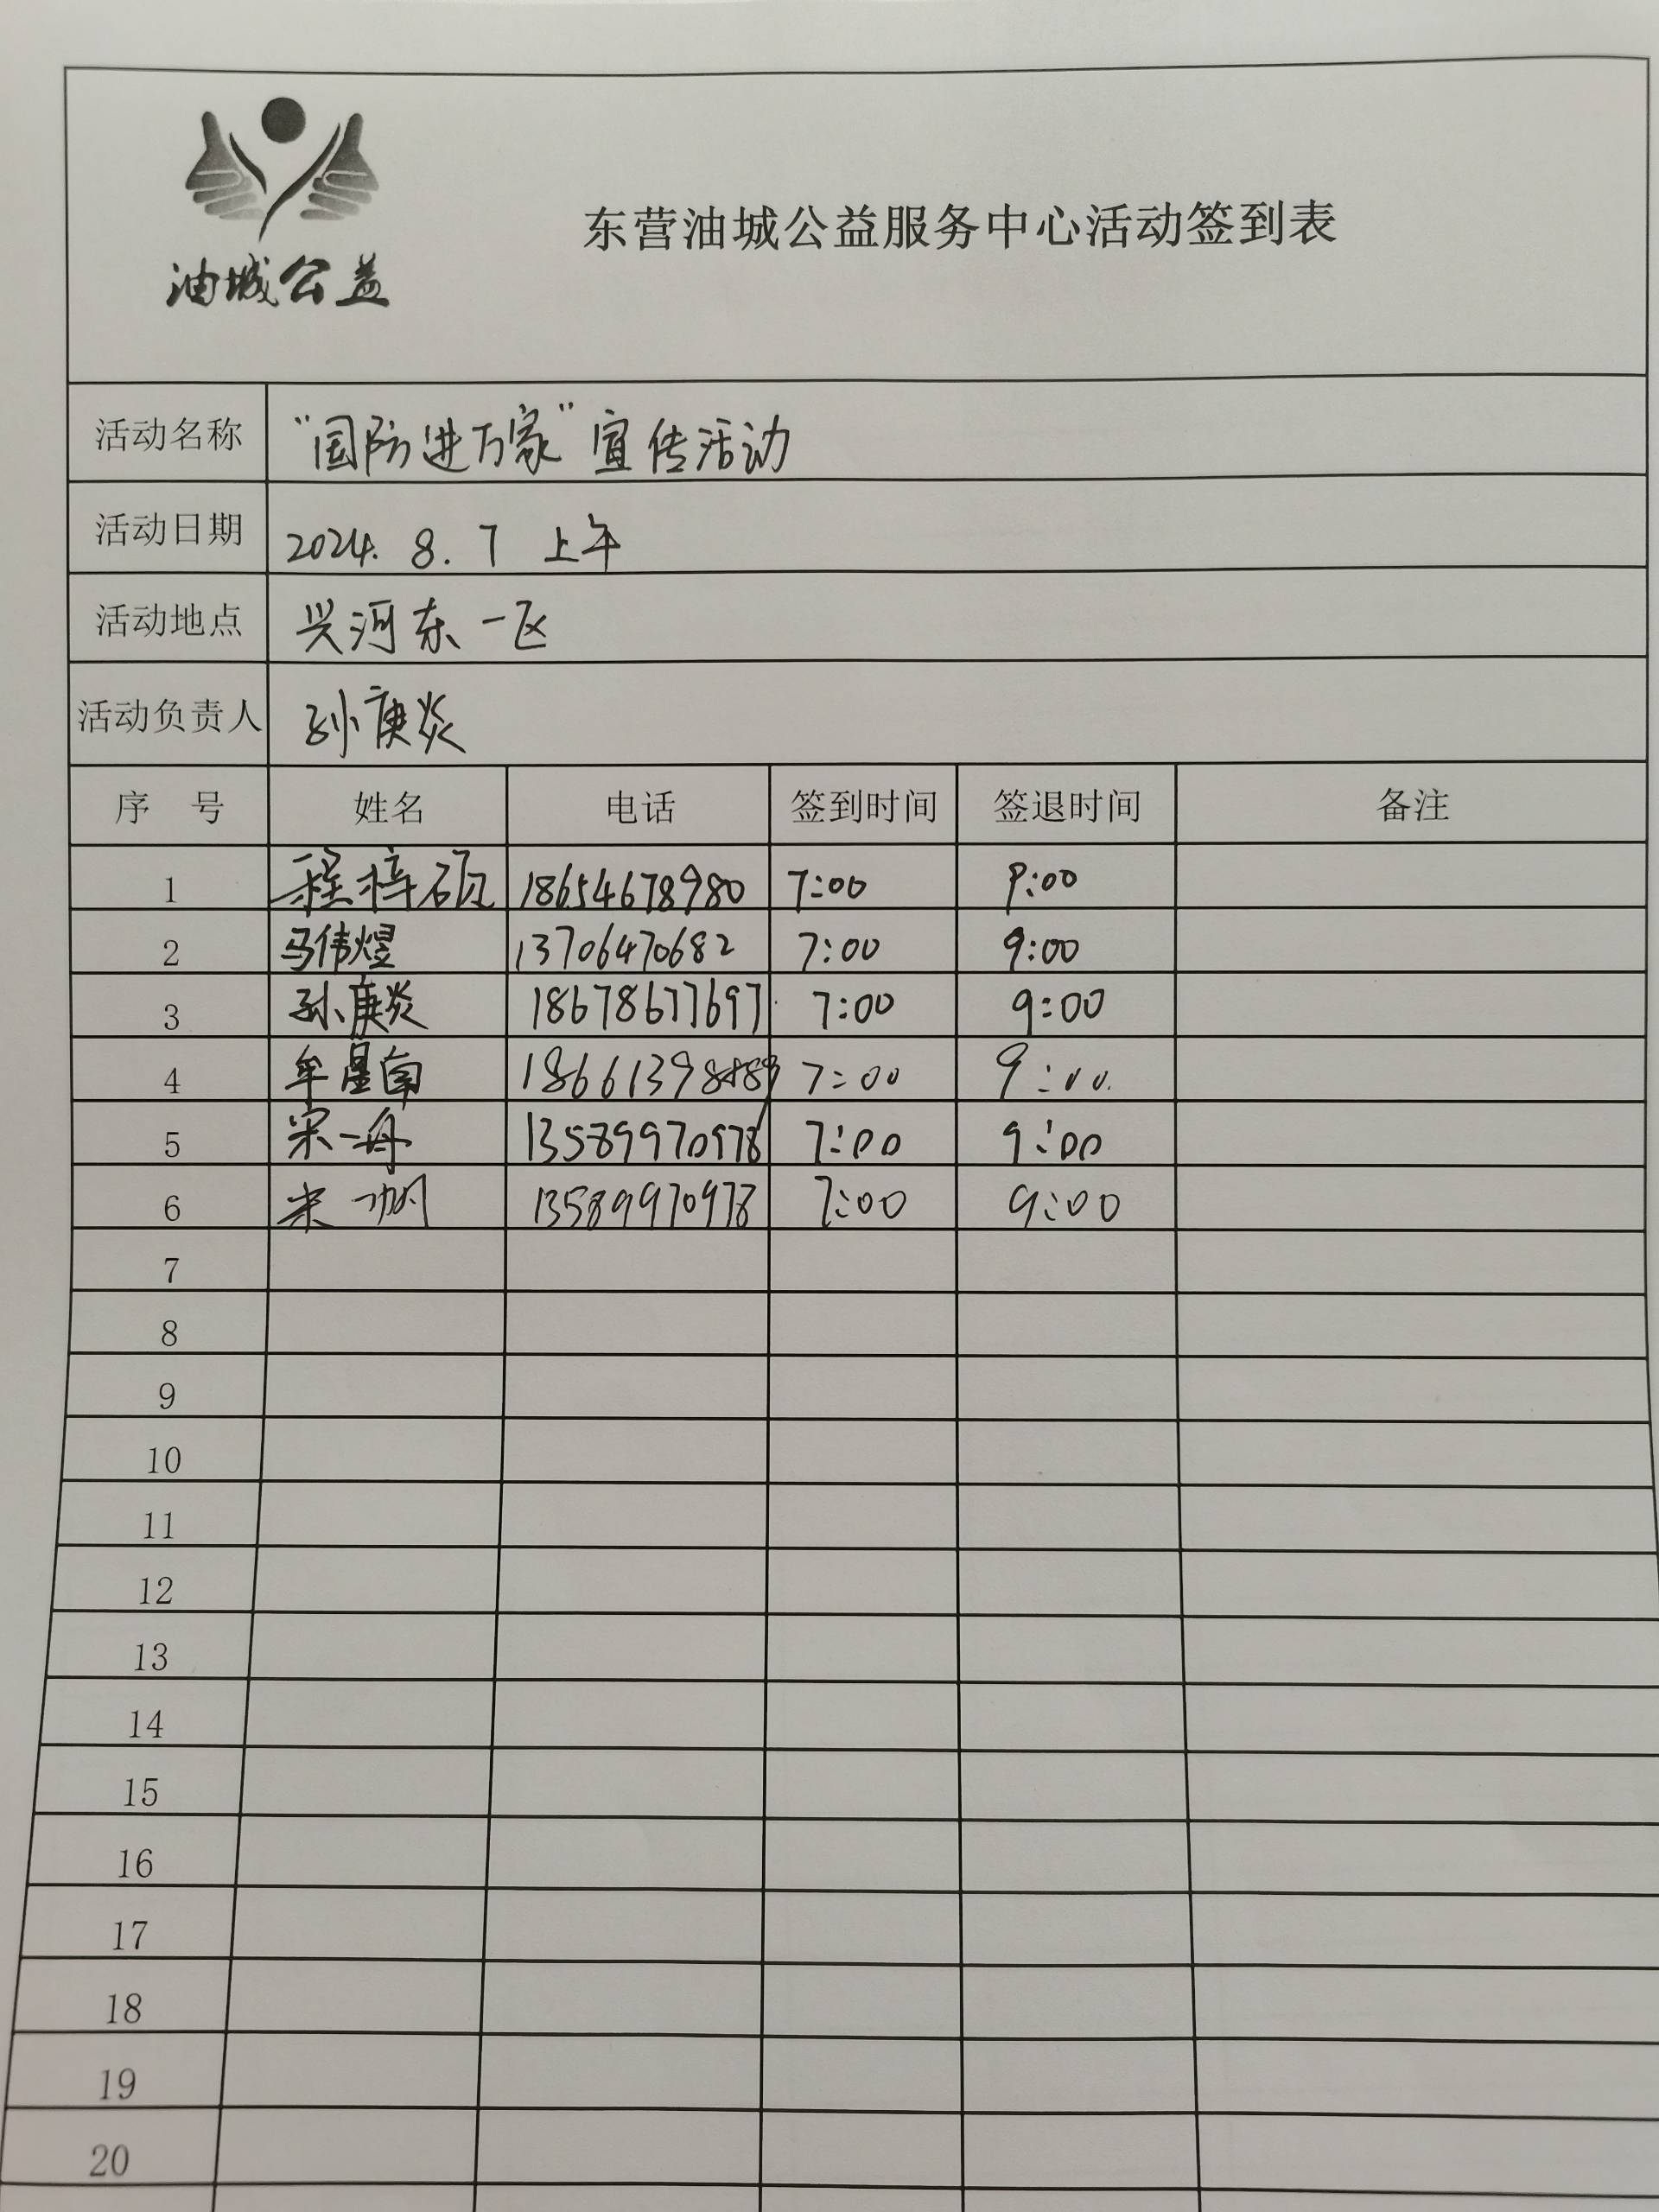 油城公益
东营油城公益服务中心活动签到表
活动名称 “国防进万家”宣传活动
活动日期 2024. 8. 7 上午
活动地点 兴河东一区
活动负责人 孙庚炎
序 号 姓名 电话 签到时间 签退时间 备注
1 程梓硕 18654678980 7:00 9:00
2 马伟煜 13706470682 7:00 9:00
3 孙庚炎 18678677697 7:00 9:00
4 牟星南 7:00 9:00
5 宋一舟 13589970978 7:00 9:00
6 宋一帆 13589970978 7:00 9:00
7
8
9
10
11
12
13
14
15
16
17
18
19
20